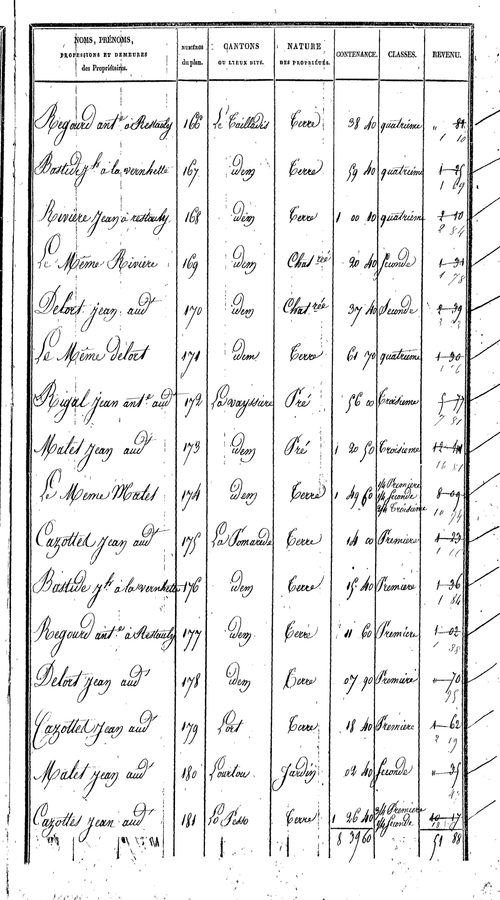 NOMS, PRÉNOMS, PROFESSIONS ET DEMEURES des Propriétaires. NUMÉROS du plan. CANTONS OU LIEUX DITS. NATURE DES PROPRIÉTÉS. CONTENANCE. CLASSES. REVENU.
Regourd ant.e à Restauly 166 Le Tailladis Terre 38 40 quatrième " 81
1 10
Bastide j.h à la vernhette 167 idem Terre 59 40 quatrième 1 25
1 69
Rivière jean à restauly 168 idem Terre 1 00 10 quatrième 2 10
2 84
Le Même Rivière 169 idem Chat.rée 20 40 seconde 1 31
1 78
Delort jean aud.t 170 idem Chat.rée 37 40 Seconde 2 39
Le Même delort 171 idem Terre 61 70 quatrième 1 30
Rigal jean ant.e aud.t 172 La vayssiere Pré 56 00 Troisieme 5 77
7 81
Matet jean aud.t 173 idem Pré 1 20 50 Troisieme 12 41
16 81
Le Même Matet 174 idem Terre 1 49 60 1/4 Premiere 1/4 seconde 2/4 Troisieme 8 09
10
Cazottes jean aud.t 175 La Pomarede Terre 14 00 Premiere 1 23
Bastide j.h à la vernhette 176 idem Terre 15 40 Premiere 1 36
1 84
Regourd ant.e à Restauly 177 idem Terre 11 60 Premiére 1 02
1 38
Delort jean aud.t 178 idem Terre 07 90 Premiere " 70
95
Cazottes jean aud.t 179 Lort Terre 18 40 Premiere 1 62
2 19
Matet jean aud.t 180 Lourtou Jardin 02 40 seconde " 35
Cazottes jean aud.t 181 Lo Pesso Terre 1 26 40 3/4 Premiere 1/4 seconde 10 17
8 39 60 51 88